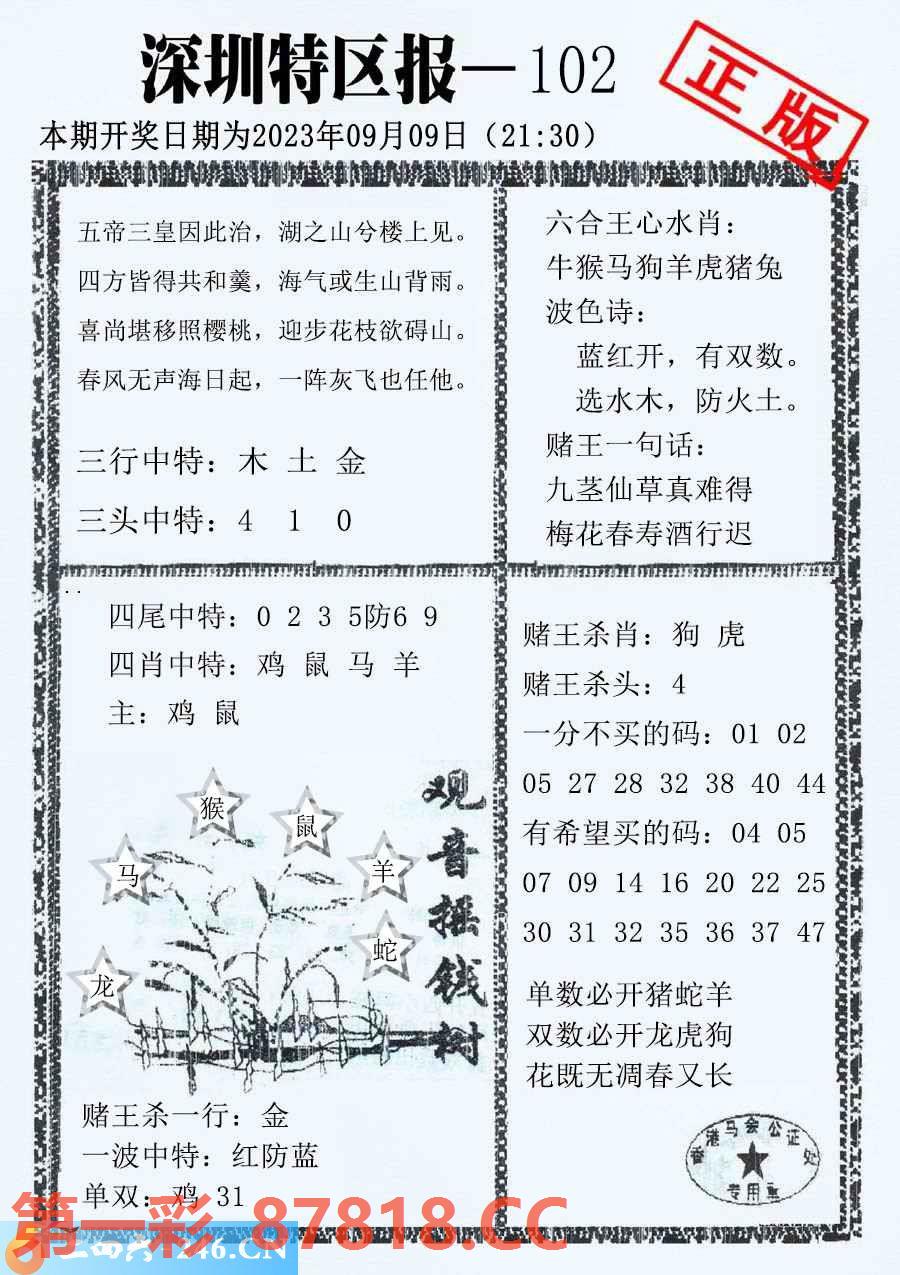 深圳特区报—102
正版
本期开奖日期为2023年09月09日（21:30）
五帝三皇因此治，湖之山兮楼上见。
四方皆得共和羹，海气或生山背雨。
喜尚堪移照樱桃，迎步花枝欲碍山。
春风无声海日起，一阵灰飞也任他。
三行中特：木 土 金
三头中特：4 1 0
六合王心水肖：
牛猴马狗羊虎猪兔
波色诗：
蓝红开，有双数。
选水木，防火土。
赌王一句话：
九茎仙草真难得
梅花春寿酒行迟
四尾中特：0 2 3 5防6 9
四肖中特：鸡 鼠 马 羊
主：鸡 鼠
观音摇钱树
猴
鼠
马
羊
蛇
龙
赌王杀一行：金
一波中特：红防蓝
单双：鸡 31
赌王杀肖：狗 虎
赌王杀头：4
一分不买的码：01 02
05 27 28 32 38 40 44
有希望买的码：04 05
07 09 14 16 20 22 25
30 31 32 35 36 37 47
单数必开猪蛇羊
双数必开龙虎狗
花既无凋春又长
香港马会公证处
专用章
第一彩 87818.CC
246.CN